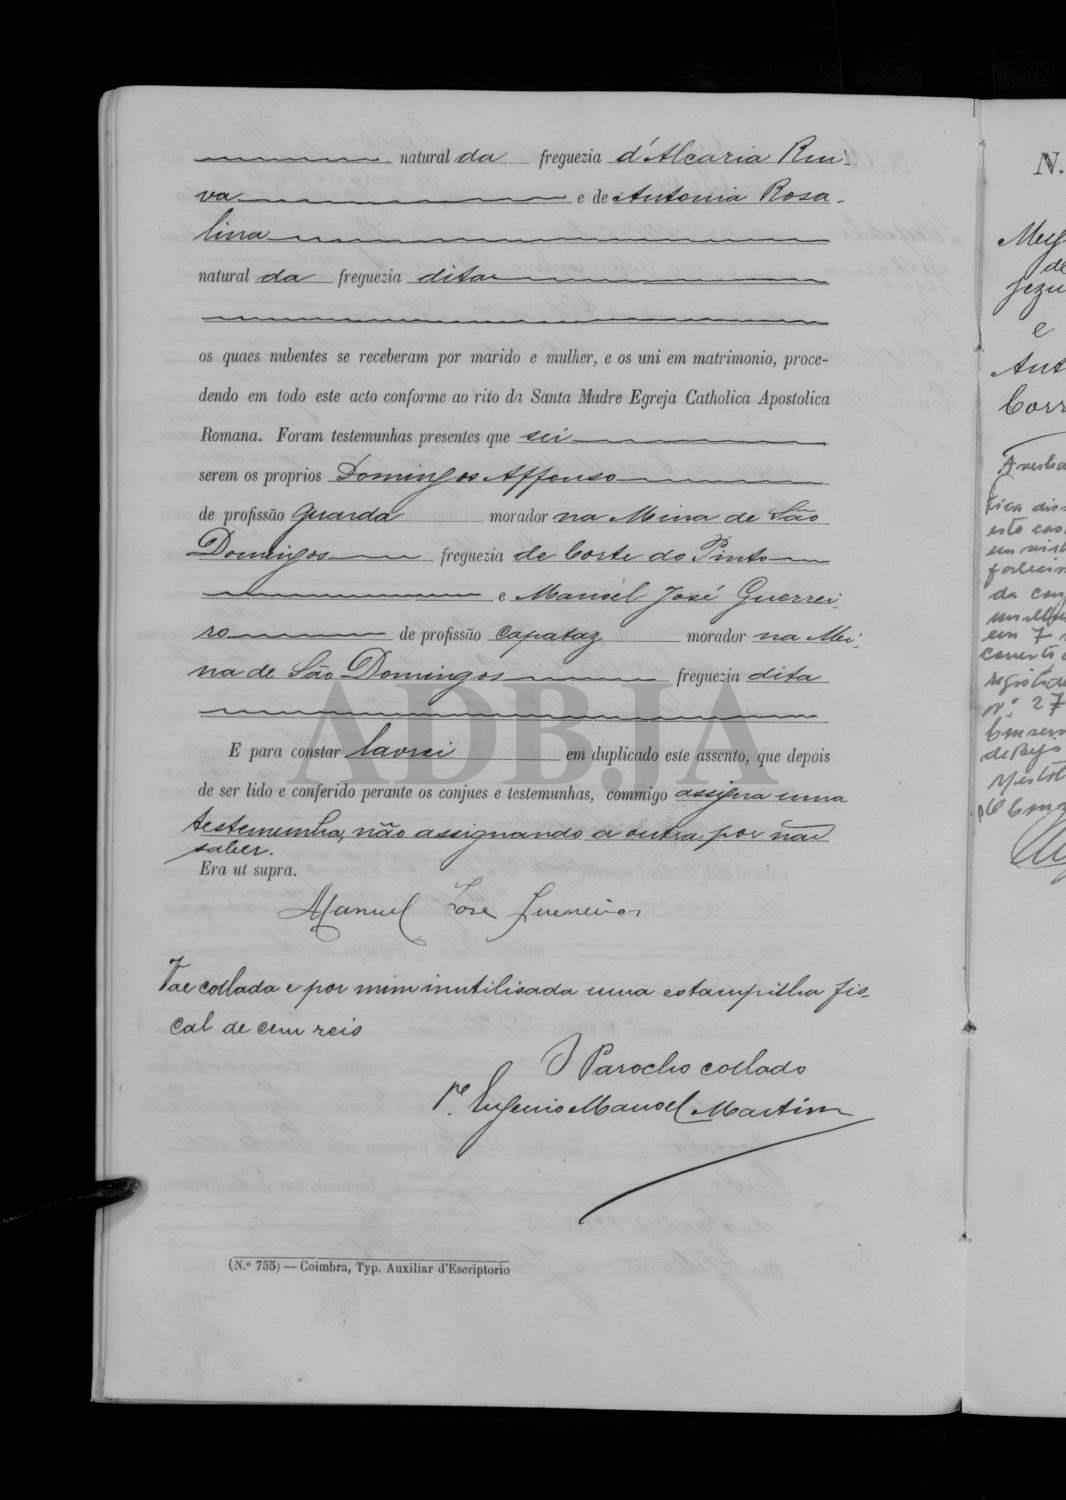 natural da freguezia d'Alcaria Rui-
va e de Antonia Rosa-
lina
natural da freguezia dita
os quaes nubentes se receberam por marido e mulher, e os uni em matrimonio, proce-
dendo em todo este acto conforme ao rito da Santa Madre Egreja Catholica Apostolica
Romana. Foram testemunhas presentes que sei
serem os proprios Domingos Affonso
de profissão guarda morador na Mina de São
Domingos freguezia de Corte do Pinto
e Manoel José Guerrei-
ro de profissão capataz morador na Mi-
na de São Domingos freguezia dita
E para constar lavrei em duplicado este assento, que depois
de ser lido e conferido perante os conjues e testemunhas, commigo assigna uma
testemunha, não assignando a outra por não
saber.
Era ut supra.
Manuel Jose Guerreiro
Vae collada e por mim inutilisada uma estampilha fis-
cal de cem reis
O Parocho collado
Pe. Eugenio Manoel Martins
(N.º 755) — Coimbra, Typ. Auxiliar d'Escriptorio
ADBJA
N.
de
e
Ant
Corr
em 7
nº 27
de Beja